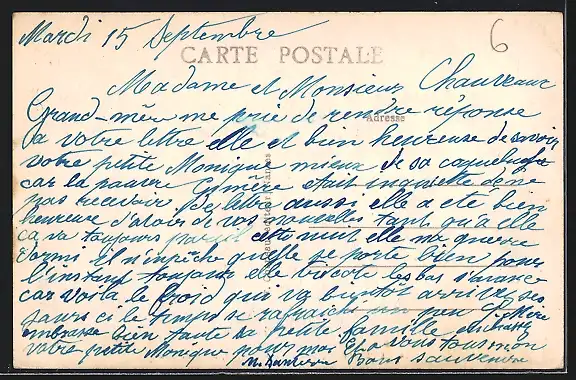 Mardi 15 Septembre
6
CARTE POSTALE
Madame et Monsieur Chauveaux
Grand-mêre me prie de rendre réponse
Adresse
a votre lettre elle et bien heureuse de savoir
votre petite Monique mieux de sa coqueluche
car la pauvre G. mêre était inquiette de ne
pas recevoir de lettre aussi elle a été bien
heureuse d'avoir de vos nouvelles tant qu'à elle
ça va toujours pareil cette nuit elle ma guerre
dormi il n'inpèche quelle se porte bien pour
l'instant toujours elle tricote les bas s'avance
car voila le froid qui va bientôt arriver ses
jours ci le temps se rafraichi un peu G. Mère
embrasse bien toute sa petite famille
votre petite Monique pour moi a vous tous mon
Bons souvenire